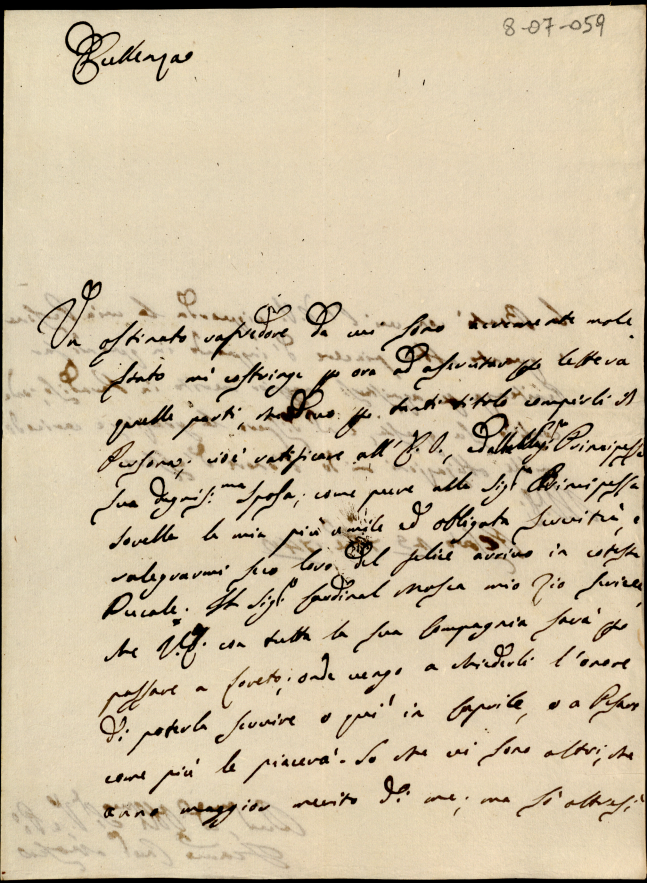 8-07-059
Eccellenza
Un ostinato raffredore da cui sono acremente mole
stato mi costringe per ora ad eseguitar per lettera
quelle parti, che devo per tanti titoli compirli di
Persona; cioè ratificare all' E. V., ed alla Sigra Principessa
sua degnis:ma sposa; come pure alla Sigra Principessa
sorella la mia più umile ed obligata servitù, e
ralegrarmi seco loro del felice arrivo in cotesta
Ducale. Il Sigr Cardinal Mosca mio Zio scrive,
che V. E. con tutta la sua Compagnia sarà per
passare a Loreto; onde vengo a chiederli l'onore
di poterla servire o qui in Caprile, o a Pesaro
come più le piacerà. So che vi sono altri, che
anno maggior merito di me; ma sò altresi